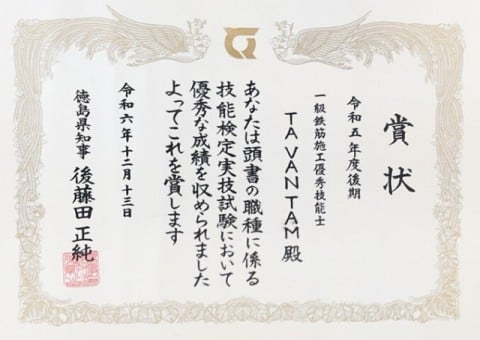 賞状
令和五年度後期
一級鉄筋施工優秀技能士
TA VAN TAM 殿
あなたは頭書の職種に係る
技能検定実技試験において
優秀な成績を収められました
よってこれを賞します
令和六年十二月十三日
徳島県知事 後藤田正純